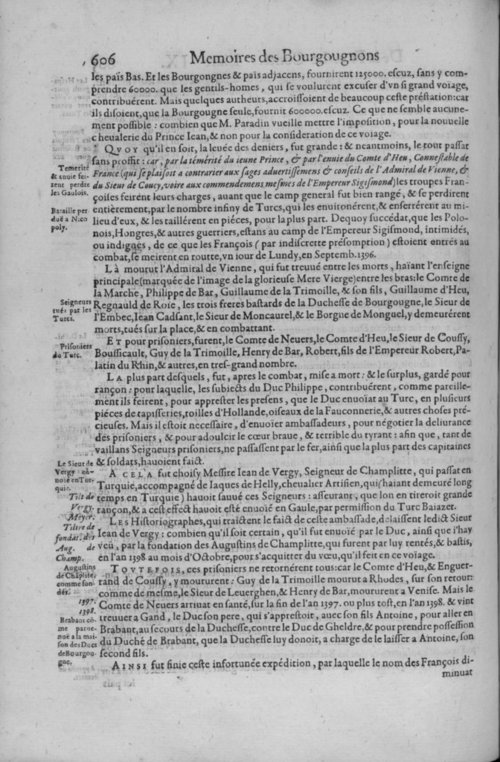 606 Memoires des Bourgougnons
les païs Bas. Et les Bourgongnes & païs adjacens, fournirent 125000. escuz, sans y com-
prendre 60000. que les gentils-homes, qui se voulurent excuser d'vn si grand voiage,
contribuérent. Mais quelques autheurs, accroissoient de beaucoup ceste préstation: car
ils disoient, que la Bourgougne seule, fournit 600000. escuz. Ce que ne semble aucune-
ment possible : combien que M. Paradin vueille mettre l'imposition, pour la nouuelle
cheualerie du Prince Iean, & non pour la consideration de ce voiage.
QVOY qu'il en soit, la leuée des deniers, fut grande : & neantmoins, le tout passat
sans proffit : car, par la témérité du jeune Prince, & par l'enuie du Comte d'Heu, Connestable de
France (qui se plaisoit a contrarier aux sages aduertissemens & conseils de l'Admiral de Vienne, &
du Sieur de Coucy, voire aux commendemens mesmes de l'Empereur Sigismond) les trouppes Fran-
çoises feirent leurs charges, auant que le camp general fut bien rangé, & se perdirent
entiérement, par le nombre infiny de Turcs, qui les enuironérent, & enserrérent au mi-
lieu d'eux, & les taillérent en piéces, pour la plus part. Dequoy succédat, que les Polo-
nois, Hongres, & autres guerriers, estans au camp de l'Empereur Sigismond, intimidés,
ou indignés, de ce que les François (par indiscrette présomption) estoient entrés au
combat, se meirent en routte, vn iour de Lundy, en Septemb. 1396.
LÀ mourut l'Admiral de Vienne, qui fut treuué entre les morts, haïant l'enseigne
principale (marquée de l'image de la glorieuse Mere Vierge) entre les bras: le Comte de
la Marche, Philippe de Bar, Guillaume de la Trimoille, & son fils, Guillaume d'Heu,
Regnauld de Roïe, les trois freres bastards de la Duchesse de Bourgougne, le Sieur de
l'Embec, Iean Cadsant, le Sieur de Moncaurel, & le Borgne de Monguel, y demeurérent
morts, tués sur la place, & en combattant.
ET pour prisoniers, furent, le Comte de Neuers, le Comte d'Heu, le Sieur de Coussy,
Boussicault, Guy de la Trimoille, Henry de Bar, Robert, fils de l'Empereur Robert, Pa-
latin du Rhin, & autres, en tres-grand nombre.
LA plus part desquels, fut, apres le combat, mise a mort : & le surplus, gardé pour
rançon : pour laquelle, les subiects du Duc Philippe, contribuérent, comme pareille-
ment ils feirent, pour apprester les presens, que le Duc enuoïat au Turc, en plusieurs
piéces de tapisseries, toilles d'Hollande, oiseaux de la Fauconnerie, & autres choses pré-
cieuses. Mais il estoit necessaire, d'enuoïer ambassadeurs, pour négotier la deliurance
des prisoniers, & pour adoulcir le cœur braue, & terrible du tyrant : afin que, tant de
vaillans Seigneurs prisoniers, ne passassent par le fer, ainsi que la plus part des capitaines
& soldats, hauoient faict.
A CELA fut choisy Messire Iean de Vergy, Seigneur de Champlitte, qui passat en
Turquie, accompagné de Iaques de Helly, cheualier Artisien, qui (haiant demeuré long
temps en Turquie) hauoit sauué ces Seigneurs : asseurant, que lon en tireroit grande
rançon, & a cest effect hauoit esté enuoïé en Gaule, par permission du Turc Baiazet.
LES Historiographes, qui traictent le faict de ceste ambassade, delaissent ledict Sieur
Iean de Vergy : combien qu'il soit certain, qu'il fut enuoïé par le Duc, ainsi que l'hay
veu, par la fondation des Augustins de Champlitte, qui furent par luy rentés, & bastis,
en l'an 1398 au mois d'Octobre, pour s'acquitter du vœu, qu'il feit en ce voiage.
TOVTEFOIS, ces prisoniers ne retornérent tous: car le Comte d'Heu, & Enguer-
rand de Coussy, y moururent : Guy de la Trimoille mourut a Rhodes, sur son retour:
comme de mesme, le Sieur de Leuerghen, & Henry de Bar, moururent a Venise. Mais le
Comte de Neuers arriuat en santé, sur la fin de l'an 1397. ou plus tost, en l'an 1398. & vint
treuuer a Gand, le Duc son pere, qui s'apprestoit, auec son fils Antoine, pour aller en
Brabant, au secours de la Duchesse, contre le Duc de Gheldre, & pour prendre possession
du Duché de Brabant, que la Duchesse luy donoit, a charge de le laisser a Antoine, son
second fils.
AINSI fut finie ceste infortunée expédition, par laquelle le nom des François di-
minuat
Temerité
& enuie fei-
rent perdre
les Gaulois.
Bataille per
due a Nico
poly.
Seigneurs
tués par les
Turcs.
Prisoniers
du Turc.
Le Sieur de
Vergy en-
uoié en Tur-
quie.
Tilt de
Vergy.
Meyer.
Tiltre de
fondat. des
Aug. de
Champ.
Augustins
de Chāplite,
comme fon-
dés.
1397.
1398.
Brabant cō-
me parue-
nuë a la mai-
son des Ducs
de Bourgou-
gne.